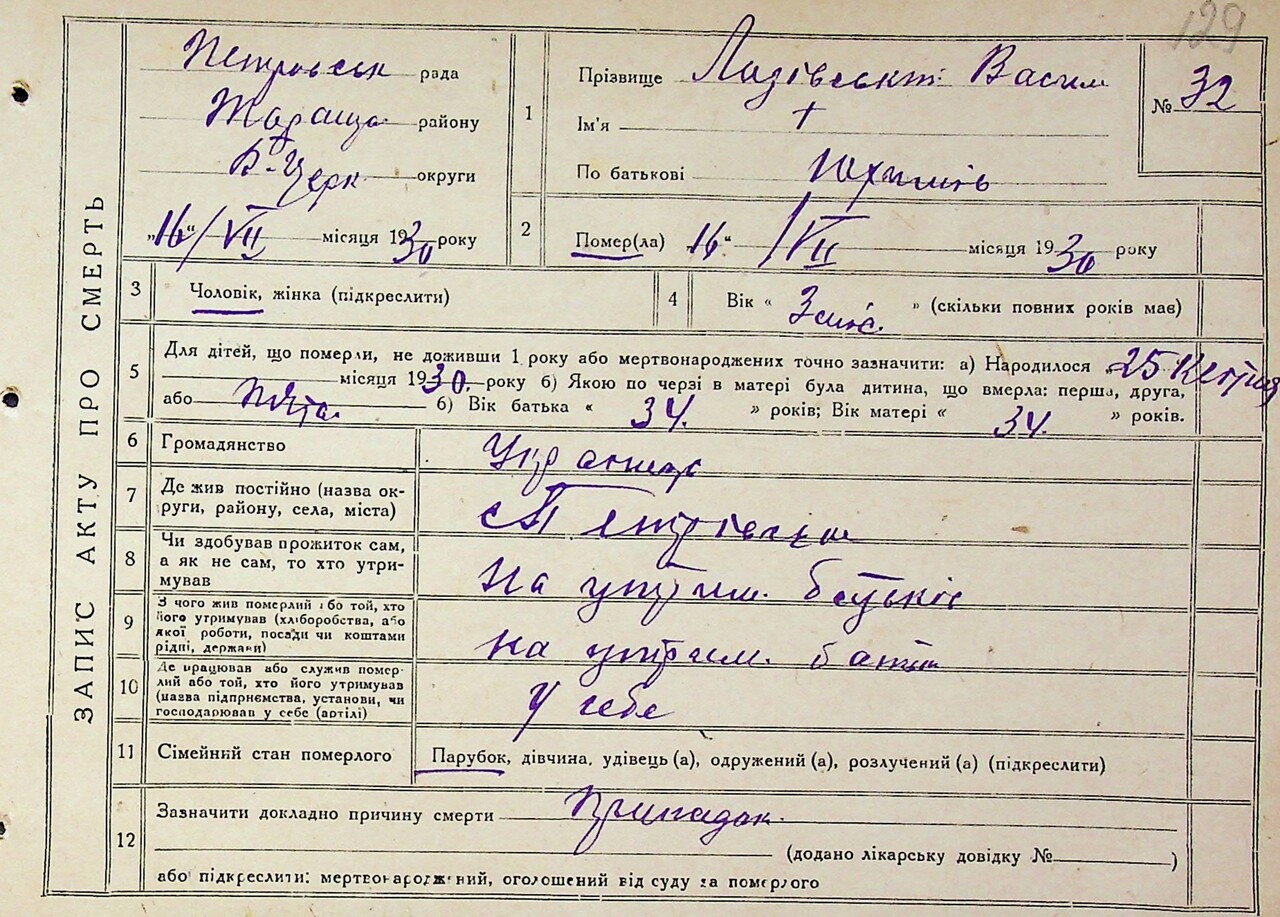 129
ЗАПИС АКТУ ПРО СМЕРТЬ
Петровськ рада
Тараща району
Б-Церк округи
„16“/VII місяця 1930 року
1
Прізвище Лазівський Васил
Ім'я
По батькові Юхимів
№ 32
2
Помер(ла) 16“ /VII місяця 1930 року
3
Чоловік, жінка (підкреслити)
4
Вік « 3 міс. » (скільки повних років має)
5
Для дітей, що померли, не доживши 1 року або мертвонароджених точно зазначити: а) Народилося 25 Квітня
місяця 1930. року б) Якою по черзі в матері була дитина, що вмерла: перша, друга,
або пята б) Вік батька « 34. » років; Вік матері « 34. » років.
6
Громадянство
7
Де жив постійно (назва округи, району, села, міста)
8
Чи здобував прожиток сам, а як не сам, то хто утримував
На утрим. батьків
9
З чого жив померлий або той, хто його утримував (хліборобства, або якої роботи, посади чи коштами рідні, держави)
на утрим.
10
Де працював або служив померлий або той, хто його утримував (назва підприємства, установи, чи господарював у себе (артілі)
У себе
11
Сімейний стан померлого
Парубок, дівчина, удівець (а), одружений (а), розлучений (а) (підкреслити)
12
Зазначити докладно причину смерти Припадок
(додано лікарську довідку № )
або підкреслити: мертвонароджений, оголошений від суду за померлого